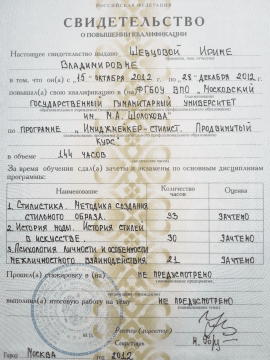 РОССИЙСКАЯ ФЕДЕРАЦИЯ
СВИДЕТЕЛЬСТВО
О ПОВЫШЕНИИ КВАЛИФИКАЦИИ
Настоящее свидетельство выдано Шевцовой Ирине
Владимировне
в том, что он(а) с „15" октября 2012 г. по „28" декабря 2012 г.
повышал(а) свою квалификацию в (на) ФГБОУ ВПО „Московский
государственный гуманитарный университет
им. М.А. Шолохова"
по программе „Имиджмейкер-стилист. Продвинутый
курс"
в объеме 144 часов
За время обучения сдал(а) зачеты и экзамены по основным дисциплинам
программы:
Наименование Количество часов Оценка
1. Стилистика. Методика создания
стильного образа. 93 зачтено
2. История моды. История стилей
в искусстве 30 зачтено
3. Психология личности и особенности
межличностного взаимодействия. 21 зачтено
Прошел(а) стажировку в (на) не предусмотрено
выполнил(а) итоговую работу на тему не предусмотрено
Ректор (директор)
Секретарь
Город Москва 2012